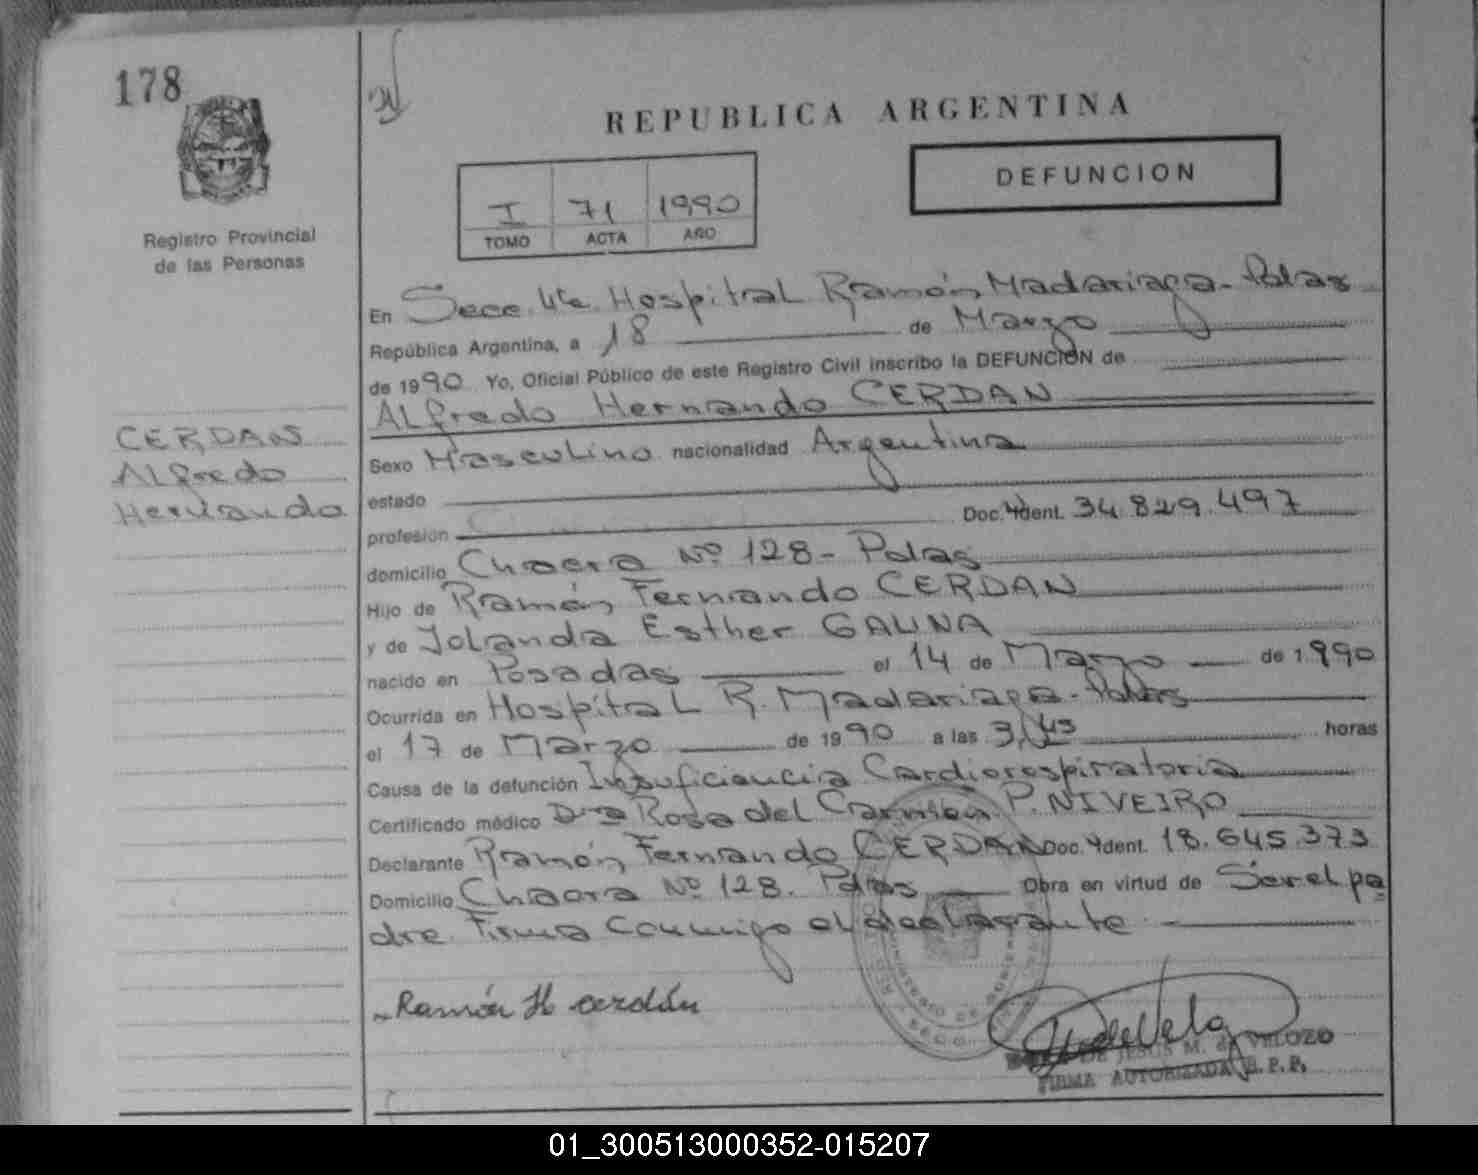 178
REPUBLICA ARGENTINA
DEFUNCION
I 71 1990
TOMO ACTA AÑO
Registro Provincial
de las Personas
En Secc. 4ta. Hospital Ramón Madariaga - Pdas
República Argentina, a 18 de Marzo
de 1990 Yo, Oficial Público de este Registro Civil inscribo la DEFUNCION de
Alfredo Hernando CERDAN
CERDAN
Alfredo
Hernando
Sexo Masculino nacionalidad Argentina
estado
profesión Doc. Ident. 34.829.497
domicilio Chacra Nº 128 - Pdas
Hijo de Ramón Fernando CERDAN
y de Yolanda Esther GAUNA
nacido en Posadas el 14 de Marzo de 1.990
Ocurrida en Hospital R. Madariaga - Pdas
el 17 de Marzo de 1990 a las 3,45 horas
Causa de la defunción Insuficiencia Cardiorespiratoria
Certificado médico Dra Rosa del Carmen P. NIVEIRO
Declarante Ramón Fernando CERDAN Doc. Ident. 18.645.373
Domicilio Chacra Nº 128. Pdas Obra en virtud de Ser el pa
dre. Firma conmigo el declarante
Ramón H cerdán
DE JESUS M. de VELOZO
FIRMA AUTORIZADA R. P. P.
01_300513000352-015207